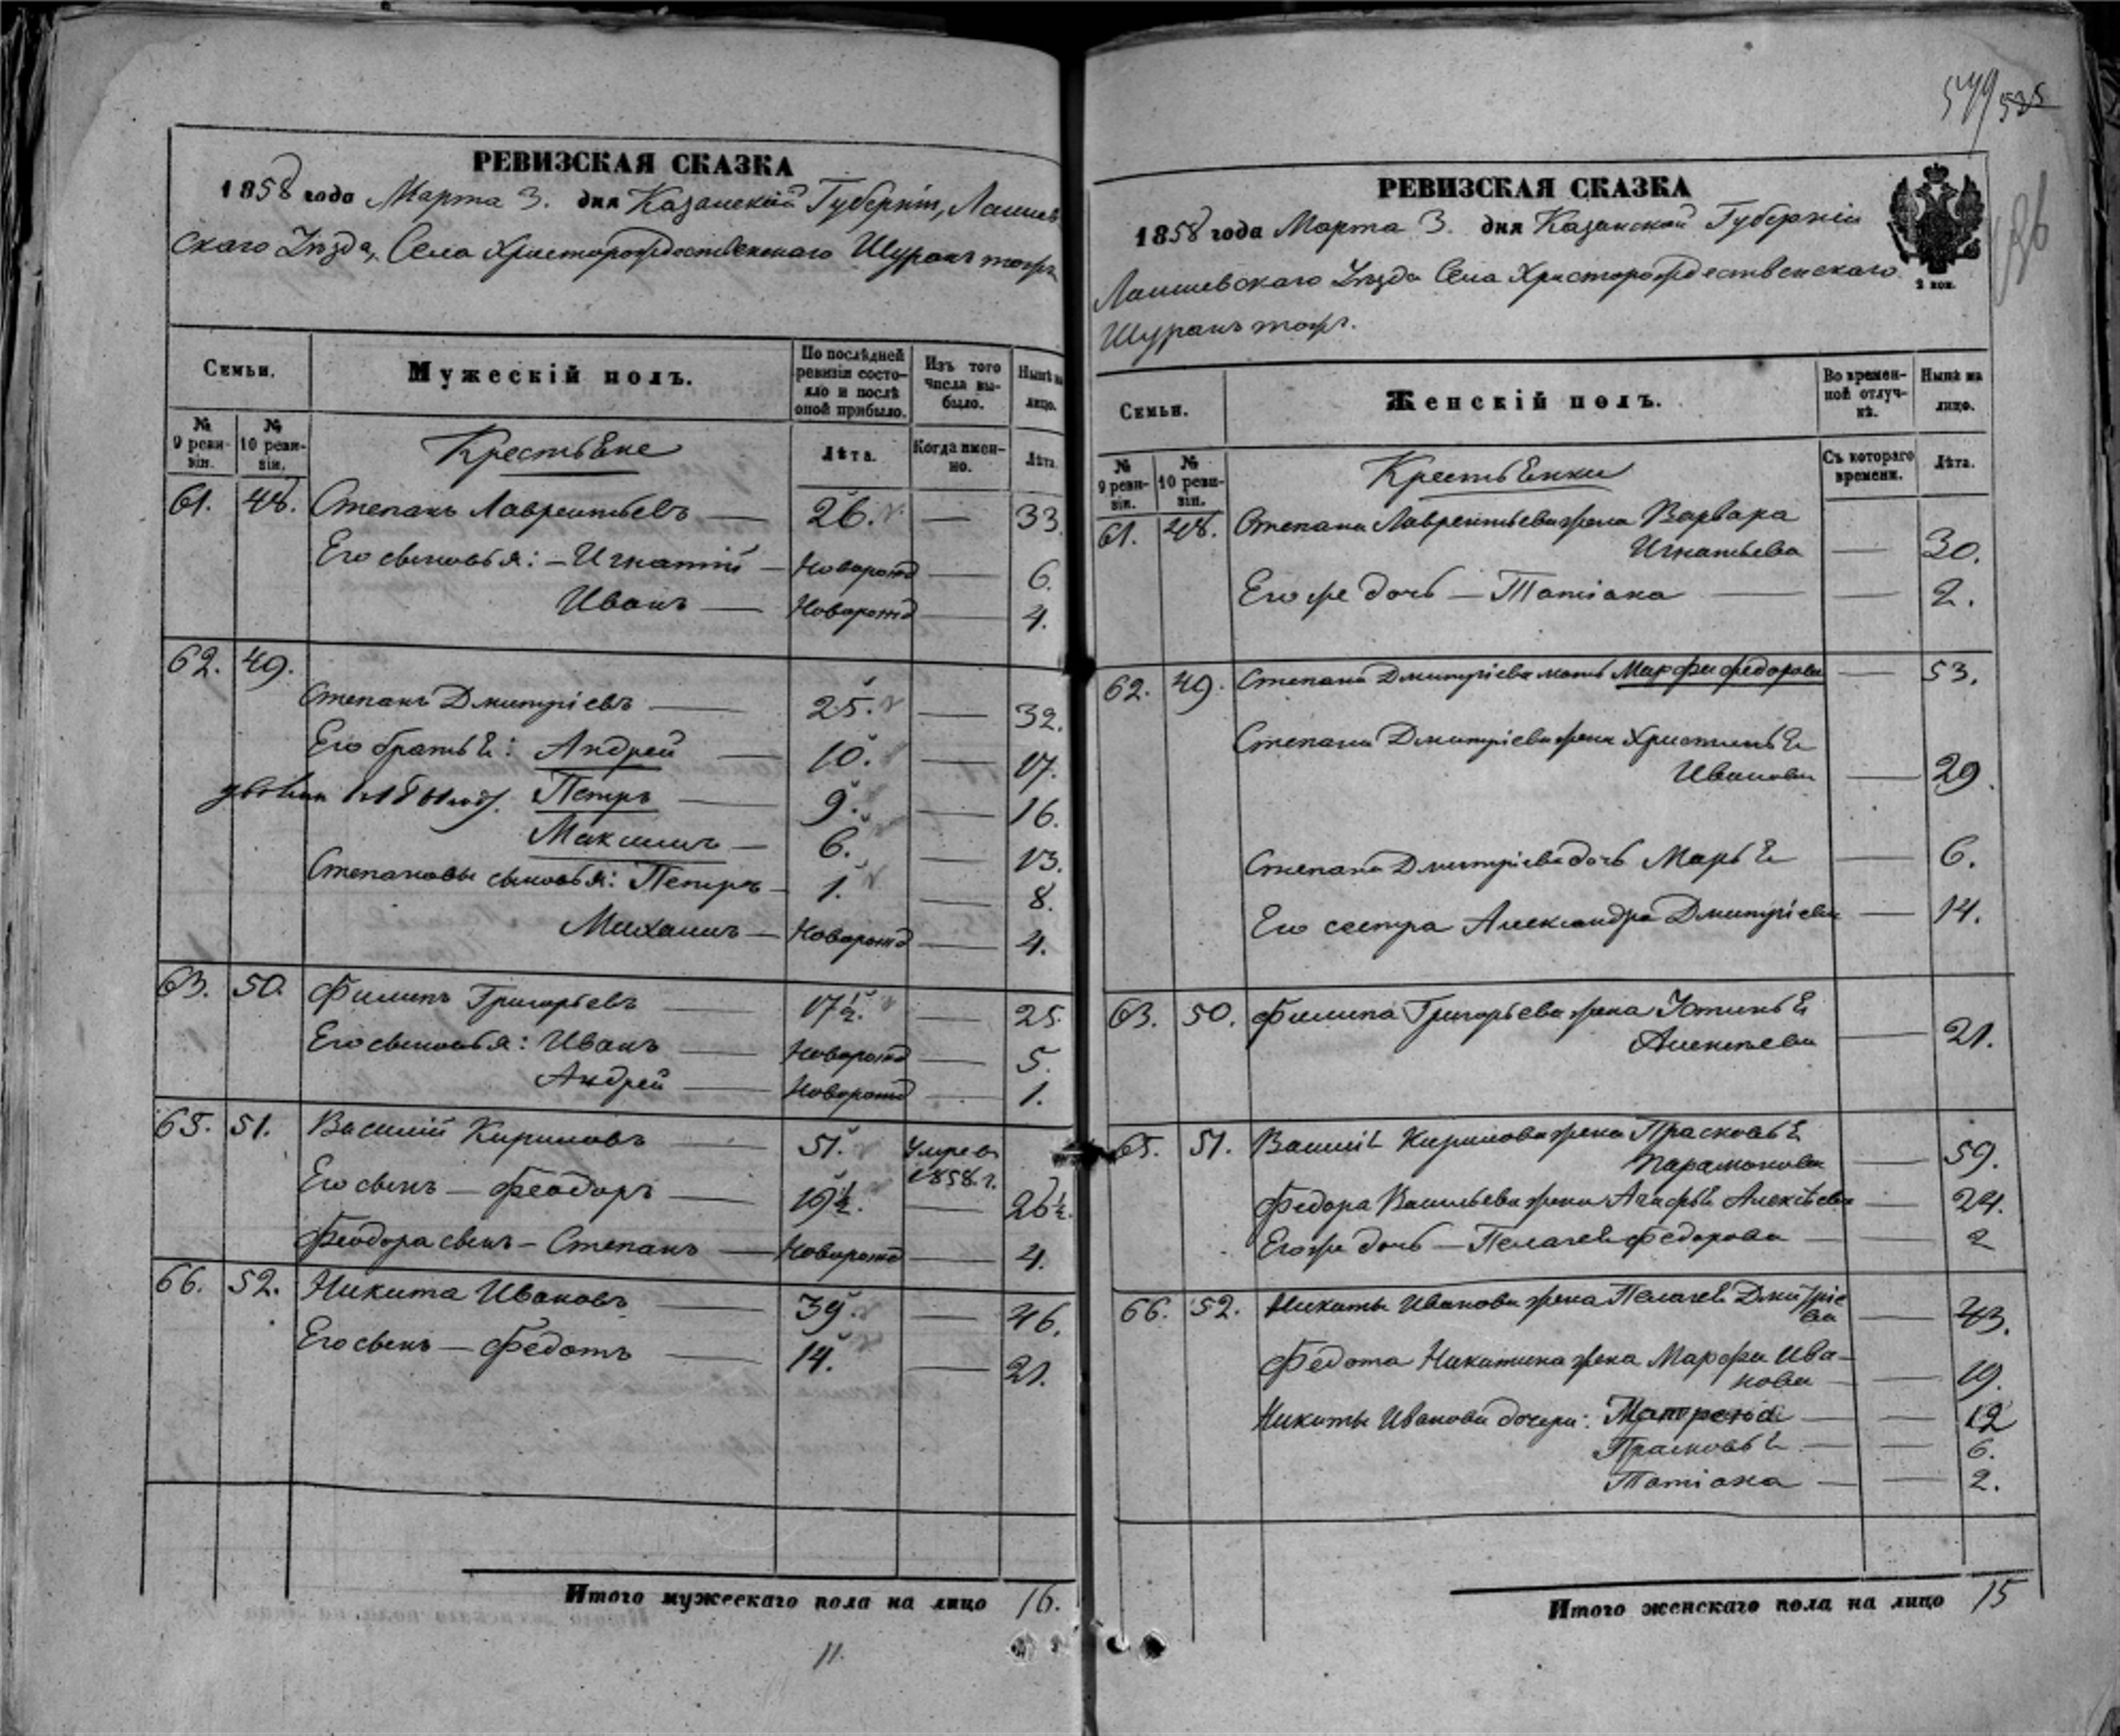 РЕВИЗСКАЯ СКАЗКА
1858 года Марта 3. дня Казанской Губерніи, Лаишев
скаго Уѣзда, Села Христорождественскаго Шуранъ тожъ
Семьи.
Мужескій полъ.
По послѣдней ревизіи состояло и послѣ оной прибыло.
Изъ того числа выбыло.
Нынѣ на лицо.
№ 9 ревизіи.
№ 10 ревизіи.
Крестьяне
Лѣта.
Когда именно.
Лѣта.
61. 48. Степанъ Лаврентьевъ — 26. — 33.
Его сыновья: – Игнатій — Новорожд — 6.
Иванъ — Новорожд — 4.
62. 49.
Степанъ Дмитріевъ — 25. — 32.
Его братья: Андрей — 10. — 17.
1861 году. Петръ — 9. — 16.
Максимъ — 6. — 13.
Степановы сыновья: Петръ — 1. — 8.
Михаилъ — Новорожд — 4.
63. 50. Филипъ Григорьевъ — 17½. — 25.
Его сыновья: Иванъ — Новорожд — 5.
Андрей — Новорожд — 1.
65. 51. Василій Кириловъ — 51. Умре въ 1858 г.
Его сынъ — Феодоръ — 19½. — 26½.
Феодора сынъ – Степанъ — Новорожд — 4.
66. 52. Никита Ивановъ — 39. — 46.
Его сынъ — Федотъ — 14. — 21.
Итого мужескаго пола на лицо 16.
11.
579/535
РЕВИЗСКАЯ СКАЗКА
1858 года Марта 3. дня Казанской Губерніи
Лаишевскаго Уѣзда Села Христорождественскаго
Шуранъ тожъ.
2 коп.
Семьи.
Женскій полъ.
Во временной отлучкѣ.
Нынѣ на лицо.
№ 9 ревизіи.
№ 10 ревизіи.
Крестьянки
Съ котораго времени.
Лѣта.
61. 48. Степана Лаврентьева жена Варвара
Игнатьева — 30.
Его же дочь — Татіана — 2.
62. 49. Степана Дмитріева мать Марфа Федорова — 53.
Степана Дмитріева жена Христинья
Иванова — 29.
Степана Дмитріева дочь Марья — 6.
Его сестра Александра Дмитріева — 14.
63. 50. Филипа Григорьева жена Устинья
Алексѣева — 21.
65. 51. Василія Кирилова жена Прасковья
Парамонова — 59.
Федора Васильева жена Агафья Алексѣева — 24.
Его же дочь — Пелагея Федорова — 2
66. 52. Никиты Иванова жена Пелагея Дмитріе
ва — 43.
Федота Никитина жена Марфа Ива-
нова — 19.
Никиты Иванова дочери: Матрена — 12
Прасковья — 6.
Татіана — 2.
Итого женскаго пола на лицо 15